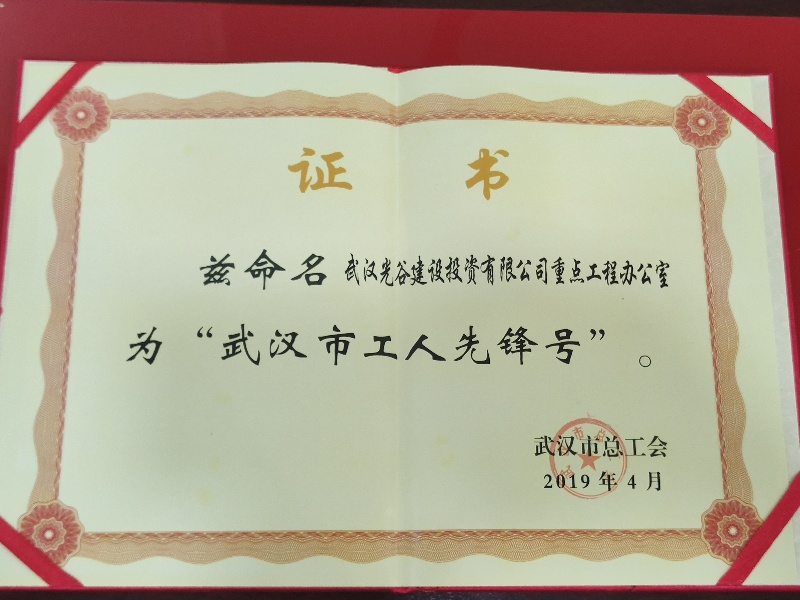 证书
兹命名武汉光谷建设投资有限公司重点工程办公室
为“武汉市工人先锋号”。
武汉市总工会
2019年4月